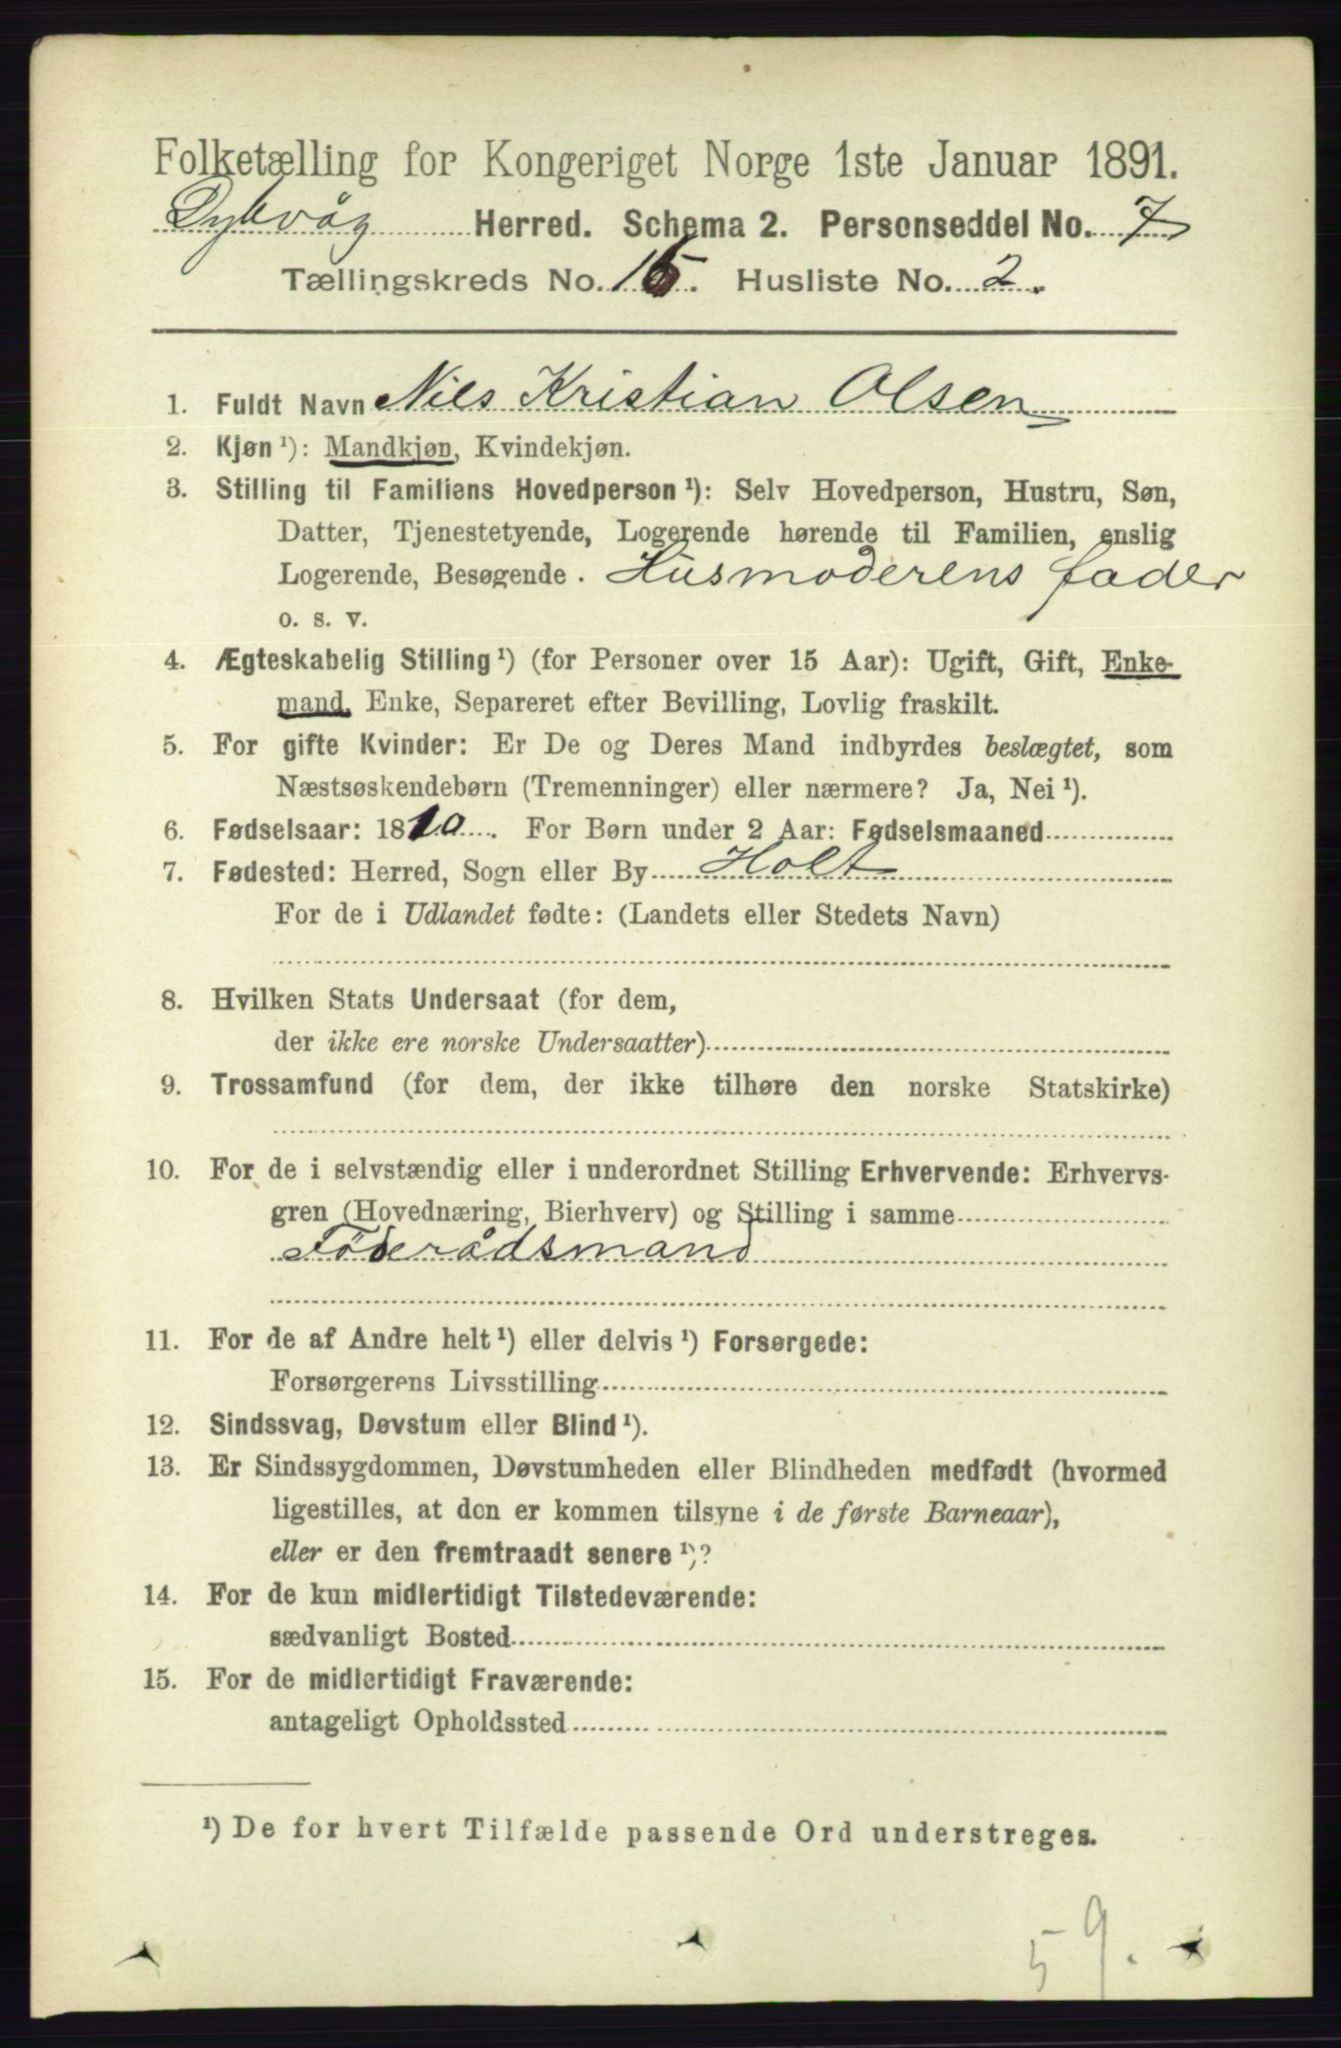 Folketælling for Kongeriget Norge 1ste Januar 1891.
Dybvåg Herred. Schema 2. Personseddel No. 7
Tællingskreds No. 15. Husliste No. 2.
1. Fuldt Navn Nils Kristian Olsen
2. Kjøn ¹): Mandkjøn, Kvindekjøn.
3. Stilling til Familiens Hovedperson ¹): Selv Hovedperson, Hustru, Søn,
Datter, Tjenestetyende, Logerende hørende til Familien, enslig
Logerende, Besøgende . Husmoderens fader
o. s. v.
4. Ægteskabelig Stilling ¹) (for Personer over 15 Aar): Ugift, Gift, Enke-
mand, Enke, Separeret efter Bevilling, Lovlig fraskilt.
5. For gifte Kvinder: Er De og Deres Mand indbyrdes beslægtet, som
Næstsøskendebørn (Tremenninger) eller nærmere? Ja, Nei ¹).
6. Fødselsaar: 1810. For Børn under 2 Aar: Fødselsmaaned
7. Fødested: Herred, Sogn eller By Holt
For de i Udlandet fødte: (Landets eller Stedets Navn)
8. Hvilken Stats Undersaat (for dem,
der ikke ere norske Undersaatter)
9. Trossamfund (for dem, der ikke tilhøre den norske Statskirke)
10. For de i selvstændig eller i underordnet Stilling Erhvervende: Erhvervs-
gren (Hovednæring, Bierhverv) og Stilling i samme
Föderådsmand
11. For de af Andre helt ¹) eller delvis ¹) Forsørgede:
Forsørgerens Livsstilling
12. Sindssvag, Døvstum eller Blind ¹).
13. Er Sindssygdommen, Døvstumheden eller Blindheden medfødt (hvormed
ligestilles, at den er kommen tilsyne i de første Barneaar),
eller er den fremtraadt senere ¹)?
14. For de kun midlertidigt Tilstedeværende:
sædvanligt Bosted
15. For de midlertidigt Fraværende:
antageligt Opholdssted
¹) De for hvert Tilfælde passende Ord understreges.
59.